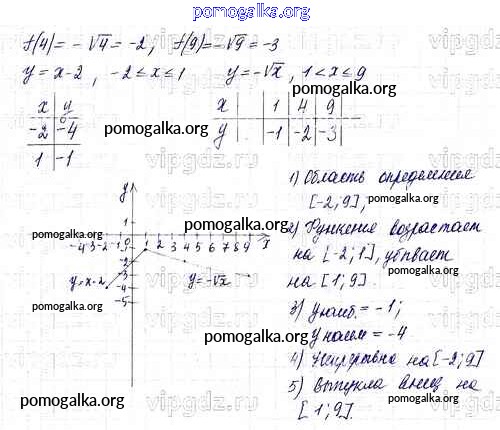 pomogalka.org
f(4) = -√4 = -2, f(9) = -√9 = -3
y = x-2, -2 ≤ x ≤ 1 y = -√x, 1 < x ≤ 9
x y
-2 -4
1 -1
x 1 4 9
y -1 -2 -3
pomogalka.org
pomogalka.org
vipgdz.ru
1) Область определения
[-2; 9],
2) Функция возрастает
на [-2; 1], убывает
на [1; 9].
3) y наиб. = -1;
y наим = -4
4) Непрерывна на [-2; 9]
5) Выпукла вниз на
[1; 9].
y
1
-4 -3 -2 -1 0 1 2 3 4 5 6 7 8 9 x
-1
-2
-3
-4
-5
y = x-2
y = -√x
pomogalka.org
pomogalka.org
pomogalka.org
pomogalka.org
pomogalka.org
pomogalka.org
pomogalka.org
vipgdz.ru
vipgdz.ru